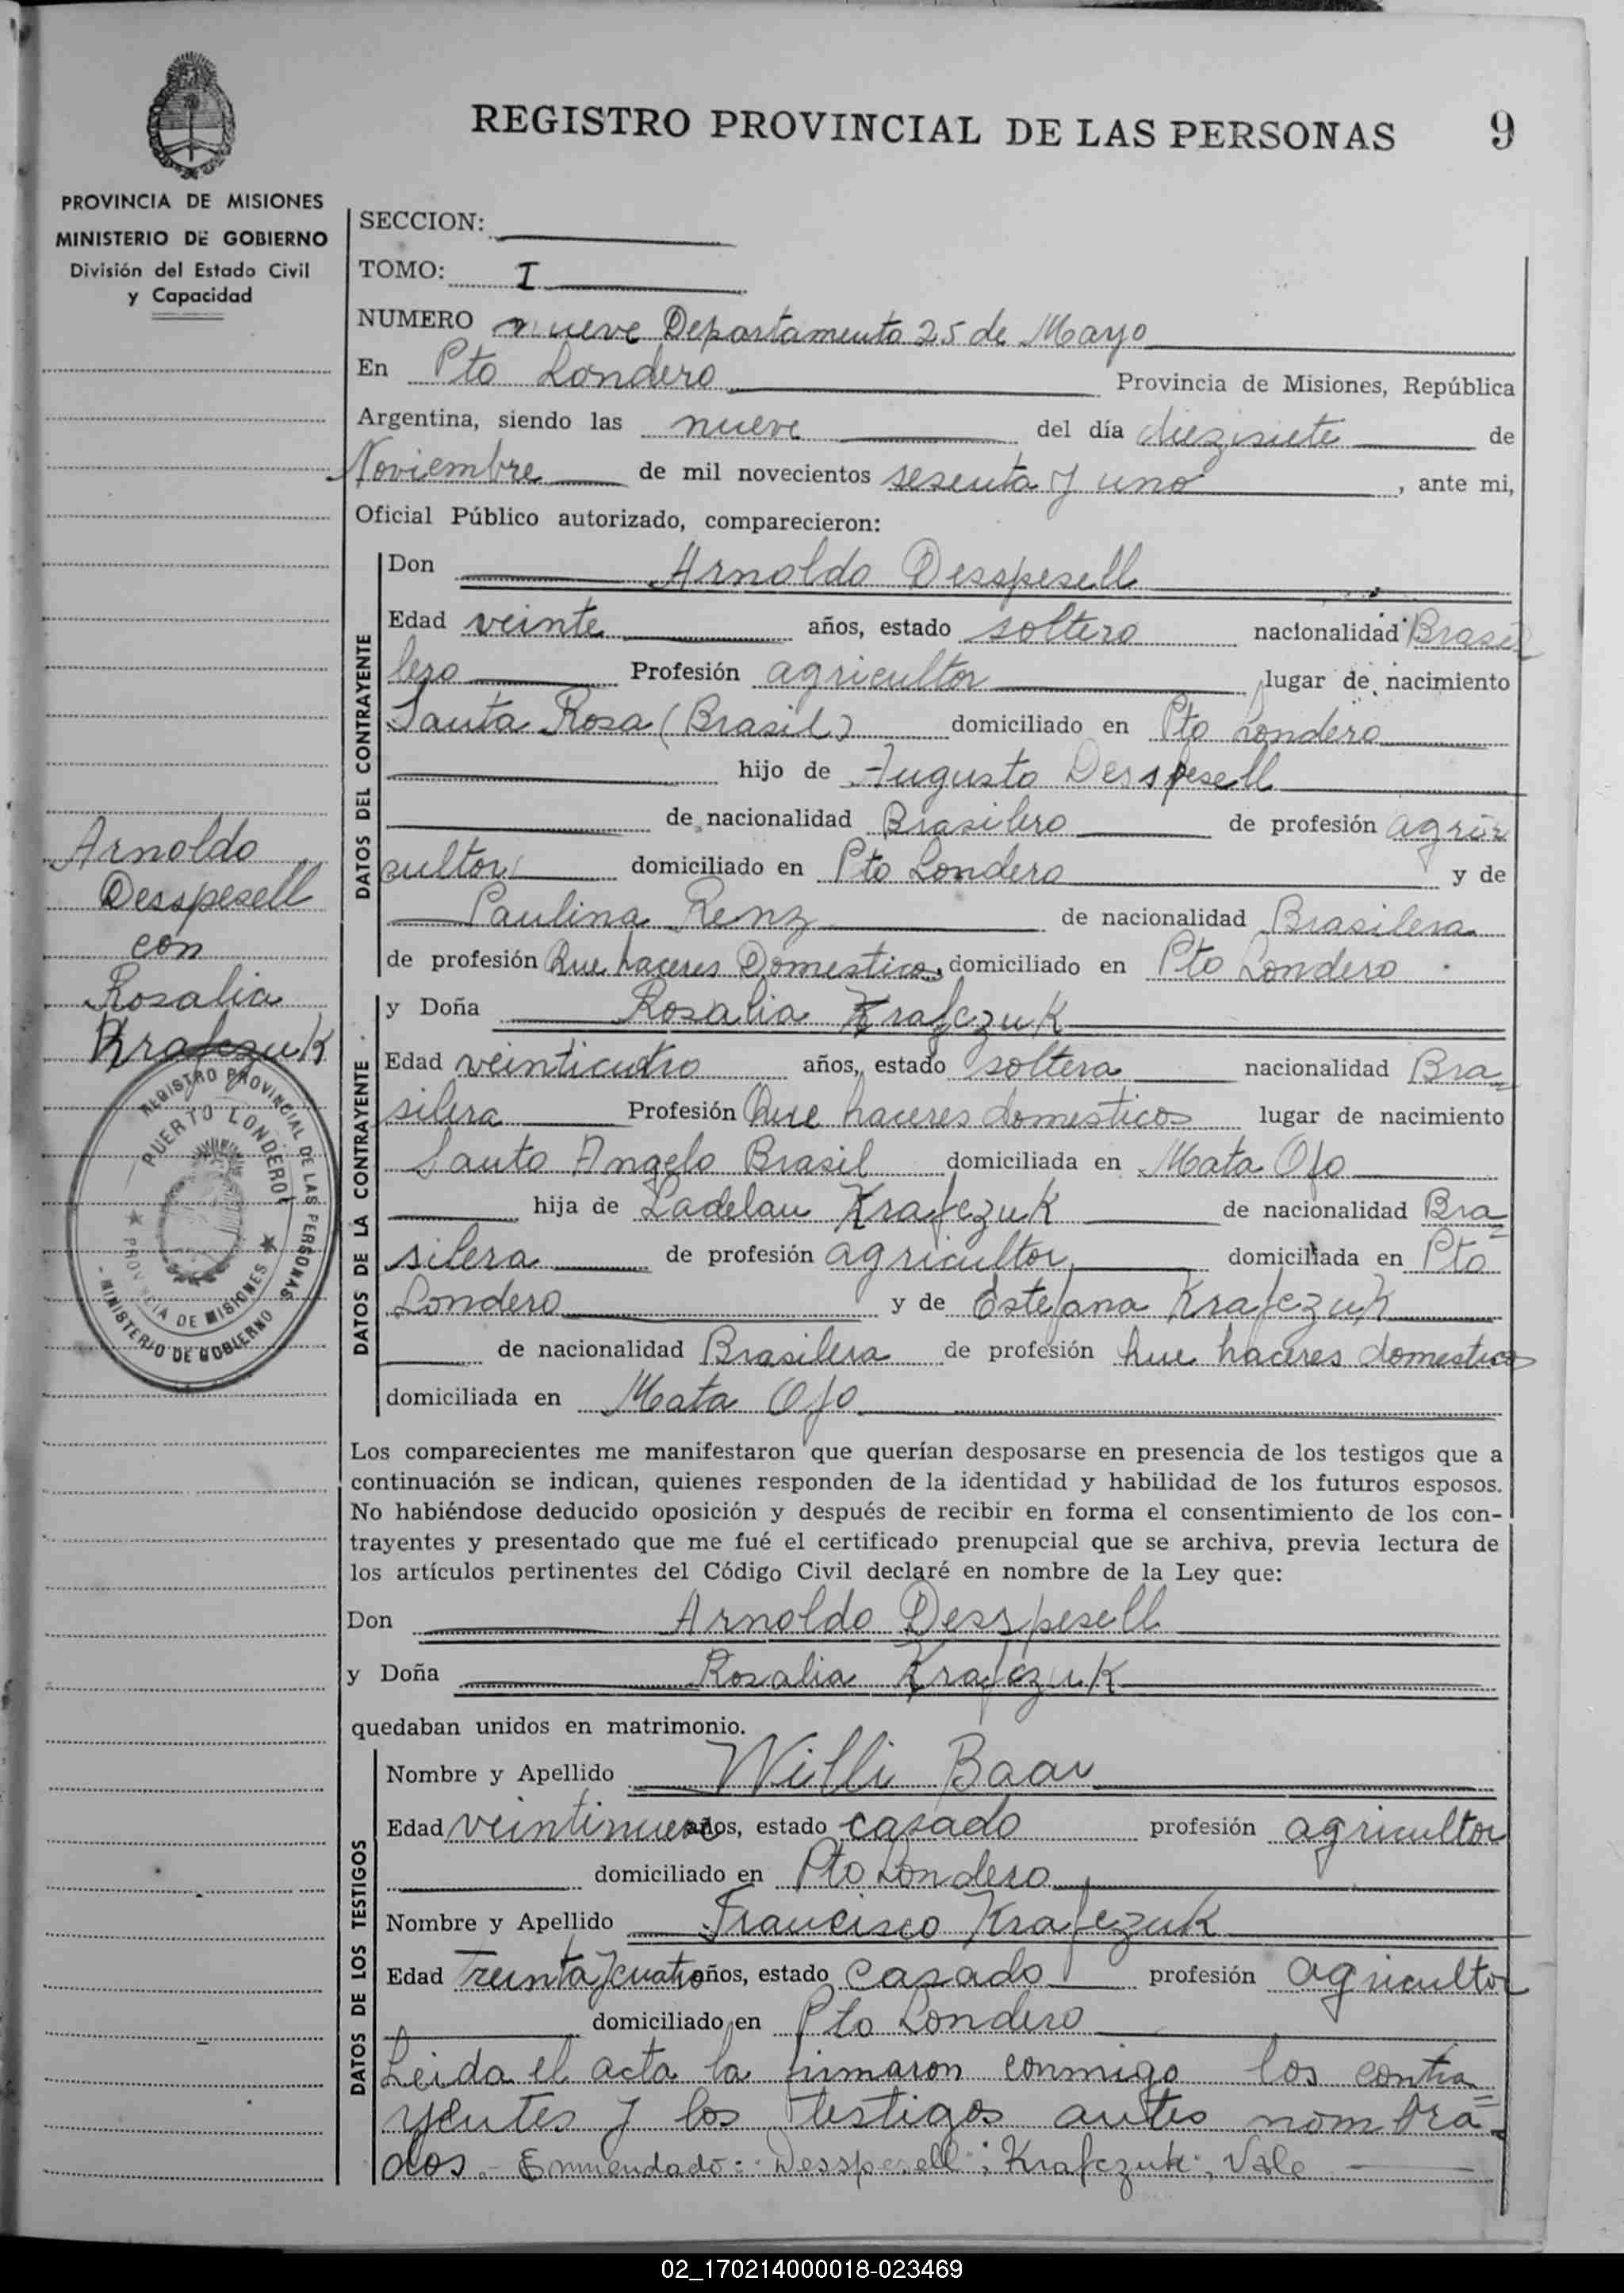 REGISTRO PROVINCIAL DE LAS PERSONAS
9
PROVINCIA DE MISIONES
MINISTERIO DE GOBIERNO
División del Estado Civil
y Capacidad
SECCION:
TOMO: I
NUMERO nueve Departamento 25 de Mayo
En Pto Londero Provincia de Misiones, República
Argentina, siendo las nueve del día diezisiete de
Noviembre de mil novecientos sesenta y uno, ante mi,
Oficial Público autorizado, comparecieron:
DATOS DEL CONTRAYENTE
Don Arnoldo Desspesell
Edad veinte años, estado soltero nacionalidad Brasi
lero Profesión agricultor lugar de nacimiento
Santa Rosa (Brasil) domiciliado en Pto Londero
hijo de Augusto Desspesell
de nacionalidad Brasilero de profesión agri
cultor domiciliado en Pto Londero y de
Paulina Renz de nacionalidad Brasilera
de profesión Que haceres Domesticos domiciliado en Pto Londero
Arnoldo
Desspesell
con
Rosalia
Krafczuk
REGISTRO PROVINCIAL DE LAS PERSONAS
PUERTO LONDERO
PROVINCIA DE MISIONES
- MINISTERIO DE GOBIERNO
DATOS DE LA CONTRAYENTE
y Doña Rosalia Krafczuk
Edad veinticuatro años, estado soltera nacionalidad Bra=
silera Profesión Que haceres domesticos lugar de nacimiento
Santo Angelo Brasil domiciliada en Mata Ojo
hija de Ladelau Krafczuk de nacionalidad Bra=
silera de profesión agricultor domiciliada en Pto
Londero y de Estefana Krafczuk
de nacionalidad Brasilera de profesión hue haceres domesticos
domiciliada en Mata Ojo
Los comparecientes me manifestaron que querían desposarse en presencia de los testigos que a
continuación se indican, quienes responden de la identidad y habilidad de los futuros esposos.
No habiéndose deducido oposición y después de recibir en forma el consentimiento de los con-
trayentes y presentado que me fué el certificado prenupcial que se archiva, previa lectura de
los artículos pertinentes del Código Civil declaré en nombre de la Ley que:
Don Arnoldo Desspesell
y Doña Rosalia Krafczuk
quedaban unidos en matrimonio.
DATOS DE LOS TESTIGOS
Nombre y Apellido Willi Baar
Edad veintinueve años, estado casado profesión agricultor
domiciliado en Pto Londero
Nombre y Apellido Francisco Krafczuk
Edad Treinta y cuatro años, estado casado profesión agricultor
domiciliado en Pto Londero
Leida el acta la firmaron conmigo los contra=
yentes y los testigos antes nombra=
dos.- Enmendado: Desspesell; Krafczuk; Vale
02_170214000018-023469